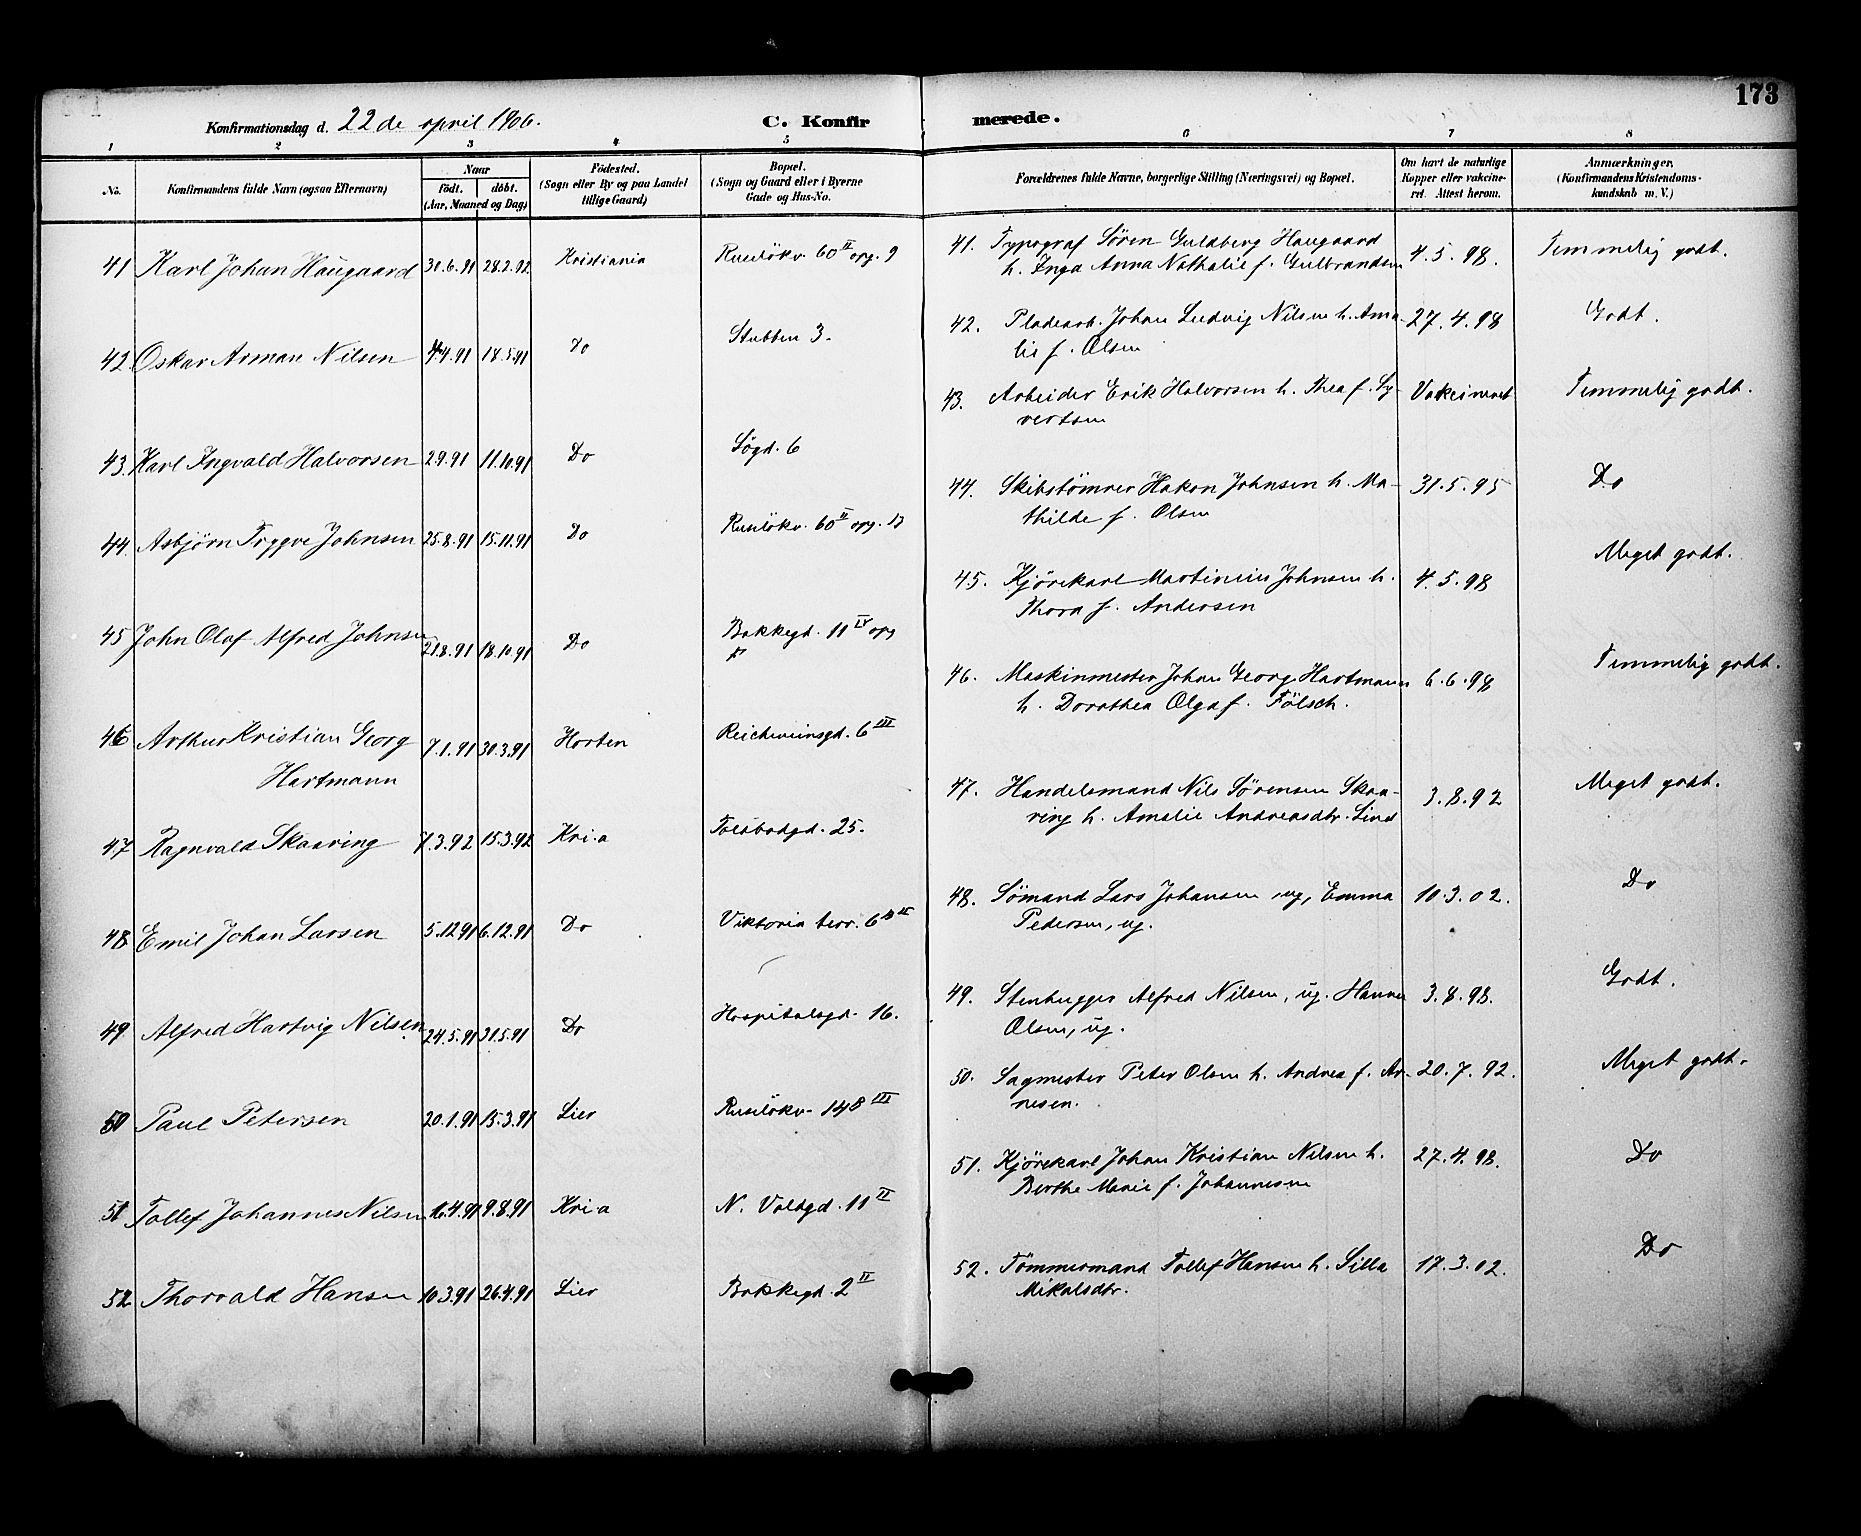 173
Konfirmationsdag d. 22de april 1906.
C. Konfirmerede.
1 2 3 4 5 6 7 8
No. Konfirmandens fulde Navn (ogsaa Efternavn) Naar födt. döbt. (Aar, Maaned og Dag) Födested. (Sogn eller By og paa Landet tillige Gaard) Bopæl. (Sogn og Gaard eller i Byerne Gade og Hus-No. Forældrenes fulde Navne, borgerlige Stilling (Næringsvei) og Bopæl. Om havt de naturlige Kopper eller vakcineret. Attest herom. Anmærkninger. (Konfirmandens Kristendomskundskab m. V.)
41 Karl Johan Haugaard 28.2.92 Kristiania Ruselökv. 60 II opg. 9
41. Typograf Sören Guldberg Haugaard 4.5.98. Temmelig godt.
h. Inga Anna Nathalie f. Gulbrandsen
42. Oskar Arman Nilsen 4.4.91 18.5.91 Do Stubben 3.
42. Pladearb. Johan Ludvig Nilsen h. Ama- 27.4.98 Godt.
lie f. Olsen
43. Karl Ingvald Halvorsen 2.9.91 11.10.91 Do Søgd. 6
43. Arbeider Erik Halvorsen h. Thea f. Sy- Vakcineret Temmelig godt.
vertsen
44. Asbjørn Trygve Johnsen 25.8.91 15.11.91 Do Ruselökv. 60 II opg.
44. Skibstømrer Hakon Johnsen h. Ma- 31.5.95 Do
thilde f. Olsen
45 John Olaf Alfred Johnsen 21.8.91 18.10.91 Do Bakkegd. 11 IV opg
45. Kjørekarl Martinius Johnsen h. 4.5.98 Meget godt.
Thora f. Andersen
46 Arthur Kristian Georg 7.1.91 30.3.91 Horten Reichweinsgd. 6 III
Hartmann
46. Maskinmester Johan Georg Hartmann 6.6.98 Temmelig godt.
h. Dorothea Olga f. Fölsch.
47 Ragnvald Skaaring 7.3.92 15.3.92 Kri.a Toldbodgd. 25.
47. Handelsmand Nils Sørensen Skaa- 3.8.92 Meget godt.
ring h. Amalie Andreasdtr. Lind
48 Emil Johan Larsen 5.12.91 6.12.91 Do Viktoria terr. 6
48. Sømand Lars Johansen, ug, Emma 10.3.02. Do
Petersen, ug.
49. Alfred Hartvig Nilsen 24.5.91 31.5.91 Do Hospitalsgd. 16.
49. Stenhugger Alfred Nilsen, ug. Hanna 3.8.98. Godt.
Olsen, ug.
50 Paul Petersen 20.1.91 15.3.91 Lier Ruselökv. 148 III
50. Sagmester Peter Olsen h. Andrea f. Ar- 20.7.92. Meget godt.
nesen.
51 Tollef Johannes Nilsen 16.4.91 9.8.91 Kri.a N. Voldgd. 11 II
51. Kjörekarl Johan Kristian Nilsen h. 27.4.98. Do
Berthe Marie f. Johannesen
52 Thorvald Hansen 10.3.91 26.4.91 Lier Bakkegd. 2 II
52. Tömmermand Tollef Hansen h. Silla 17.3.02. Do
Mikalsdtr.